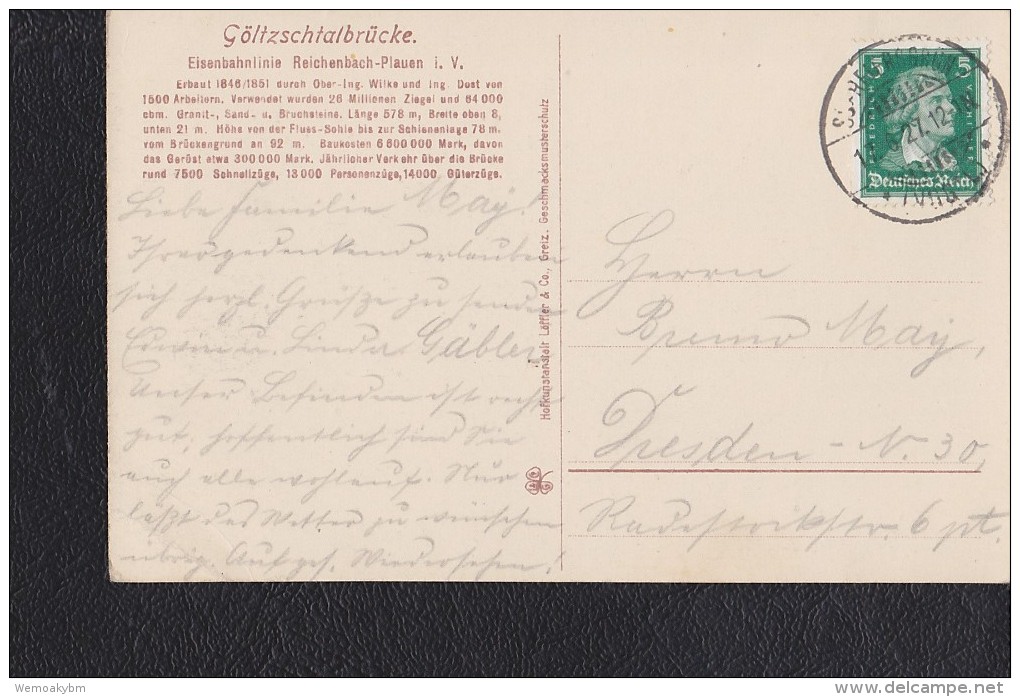 Göltzschtalbrücke.
Eisenbahnlinie Reichenbach-Plauen i. V.
Erbaut 1846/1851 durch Ober-Ing. Wilke und Ing. Dost von
1500 Arbeitern. Verwendet wurden 26 Millionen Ziegel und 64 000
cbm. Granit-, Sand- u. Bruchsteine. Länge 578 m, Breite oben 8,
unten 21 m. Höhe von der Fluss-Sohle bis zur Schienenlage 78 m.
vom Brückengrund an 92 m. Baukosten 6 600 000 Mark, davon
das Gerüst etwa 300 000 Mark. Jährlicher Verkehr über die Brücke
rund 7500 Schnellzüge, 13 000 Personenzüge, 14 000 Güterzüge.
Liebe Familie May!
Ihrer gedenkend erlauben
sich herzl. Grüße zu senden
Edwin u. Linda Gäbler
Unser Befinden ist recht
gut, hoffentlich sind Sie
auch alle wohlauf. Nur
läßt das Wetter zu wünschen
übrig. Auf ges. Wiedersehen!
Hofkunstanstalt Löffler & Co., Greiz. Geschmacksmusterschutz
5 5
FRIEDRICH
Deutsches Reich
27.12
Herrn
Bruno May,
Dresden - N. 30,
6 pt.
Wemoakybm
delcampe.net